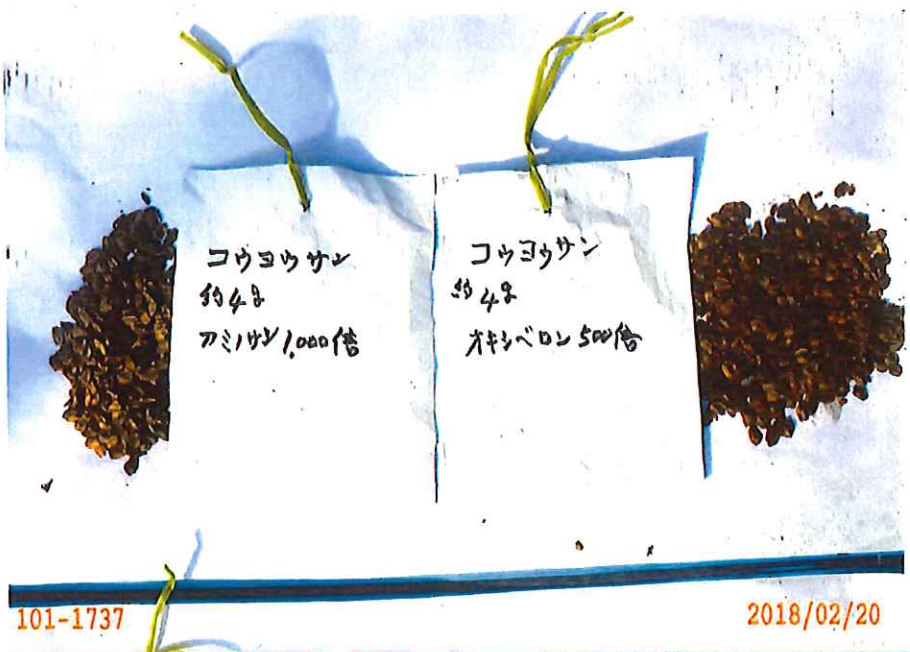 コウヨウサン
約4g
アミノサン1,000倍
コウヨウサン
約4g
オキシベロン500倍
101-1737
2018/02/20